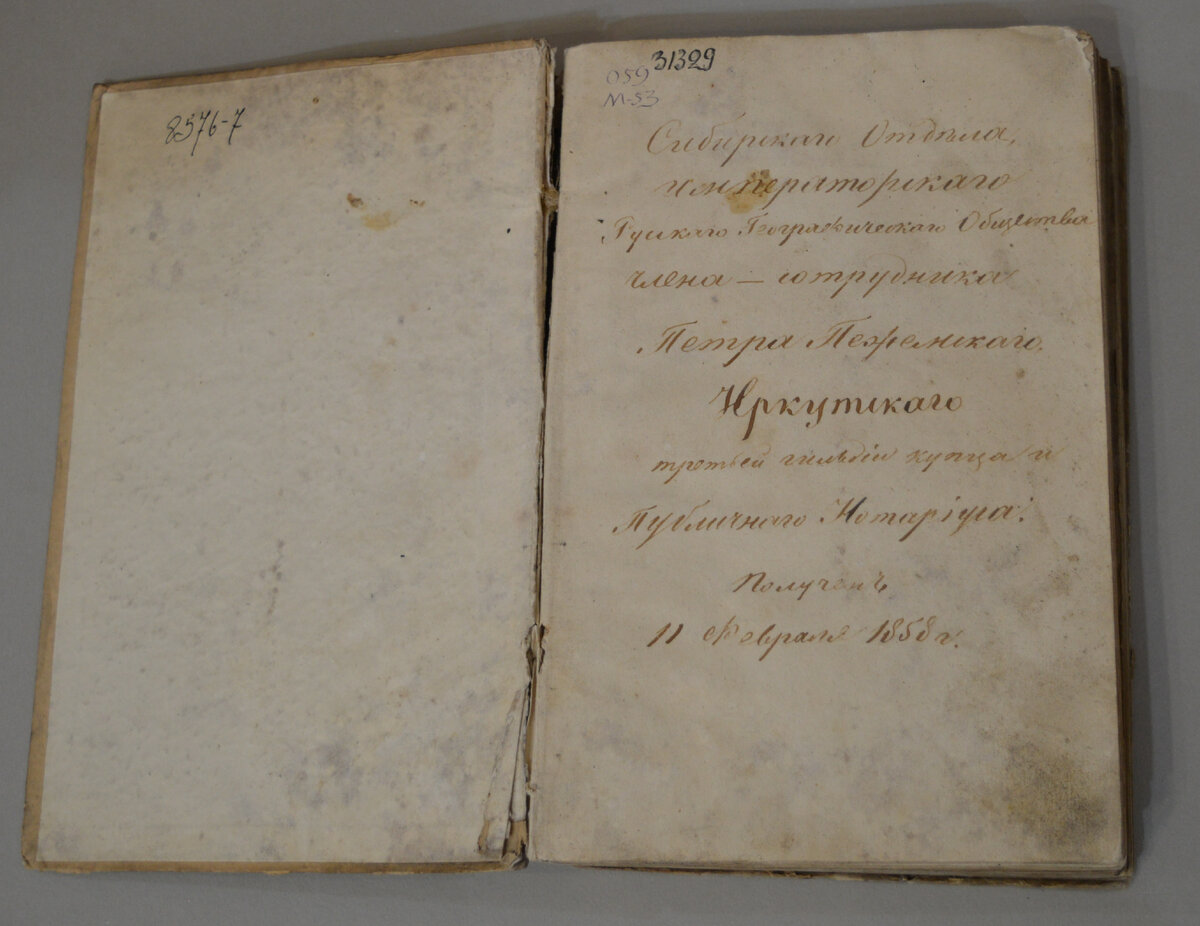 8576-7
059 31329
М-53
Сибирскаго Отдѣла,
императорскаго
Рускаго Географическаго Общества
члена — сотрудника
Петра Пежемскаго.
Иркутскаго
третьей гильдіи купца и
Публичнаго Нотаріуса.
Полученъ
11 Февраля 1858 г.